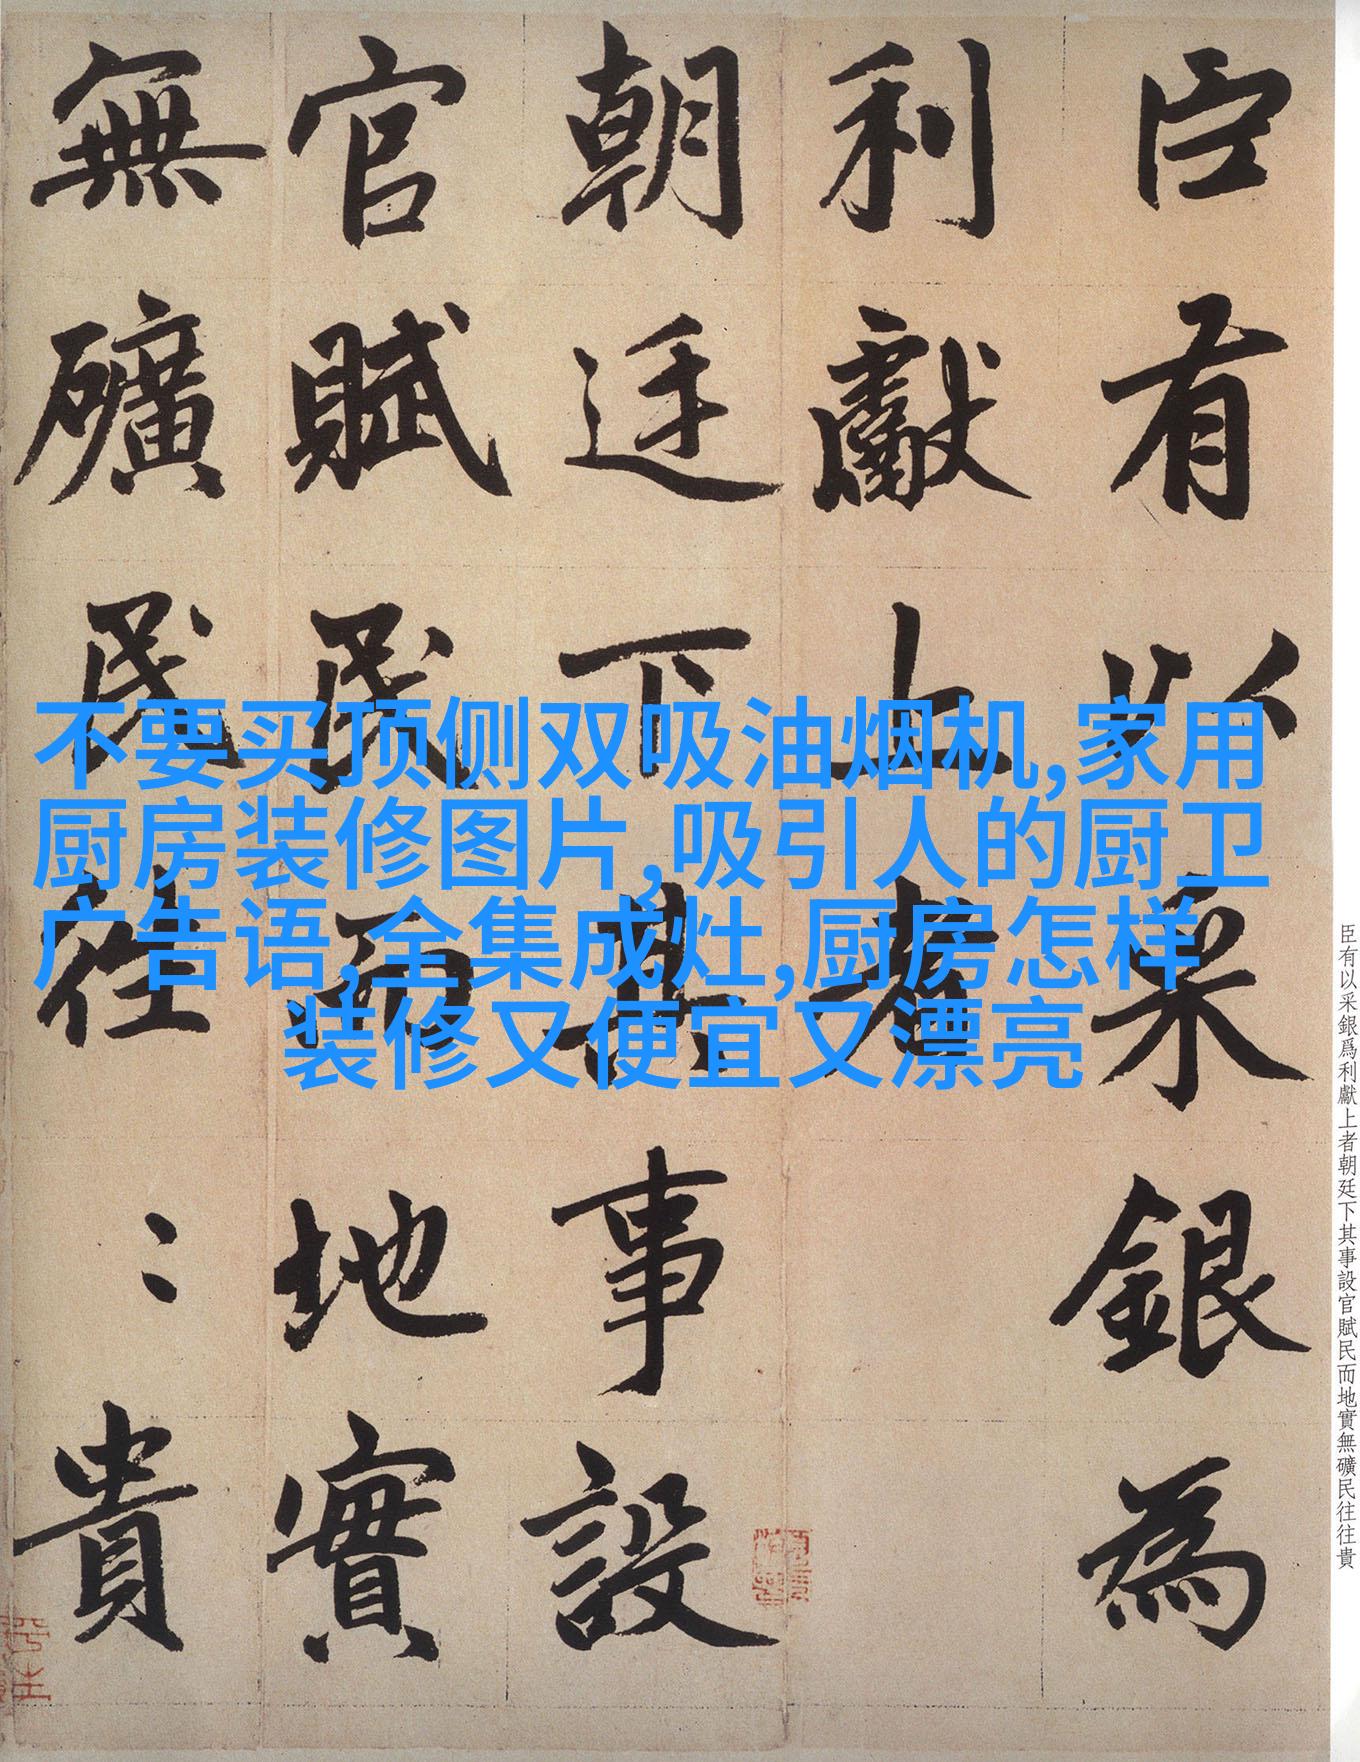 不要买顶侧双吸油烟机,家用
厨房装修图片,吸引人的厨卫
广告语,全集成灶,厨房怎样
装修又便宜又漂亮
臣有以采銀爲利獻上者朝廷下其事設官賦民而地實無礦民往往貴
臣有以采銀為
利獻上者
朝廷下其事設
官賦民而地實
無礦民往〻貴